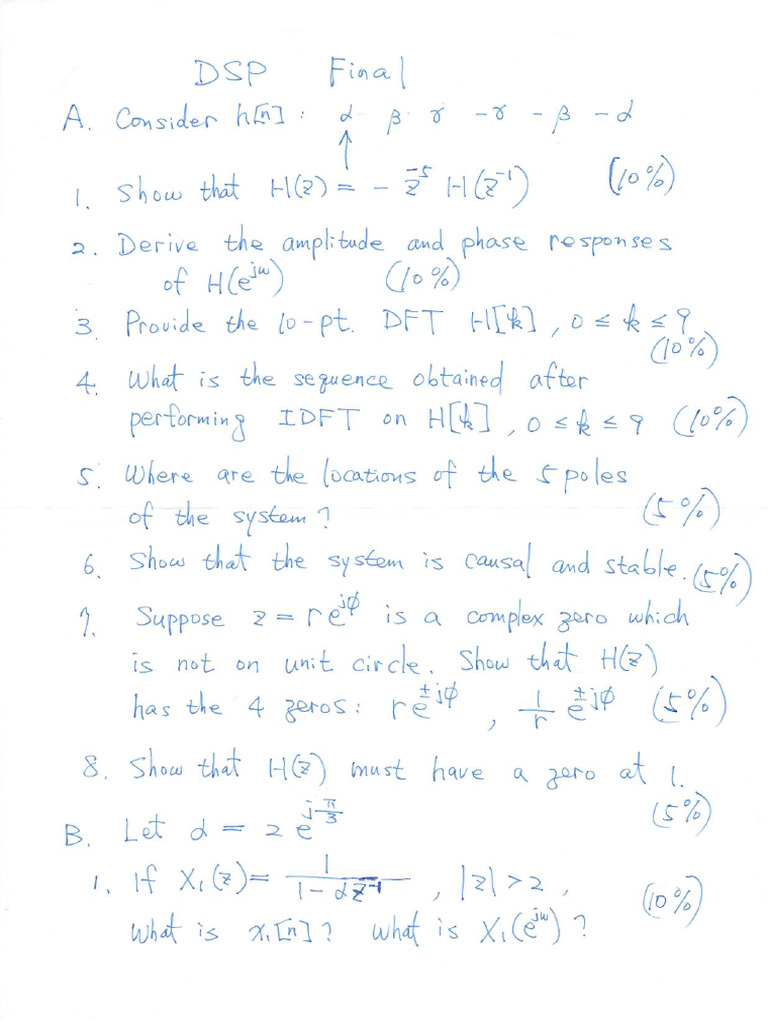 DSP Final
A. Consider h[n] : α β γ -γ -β -α
↑
1. Show that H(z) = - z^-5 H(z^-1) (10%)
2. Derive the amplitude and phase responses
of H(e^jω) (10%)
3. Provide the 10-pt. DFT H[k], 0 ≤ k ≤ 9
(10%)
4. What is the sequence obtained after
performing IDFT on H[k], 0 ≤ k ≤ 9 (10%)
5. Where are the locations of the 5 poles
of the system? (5%)
6. Show that the system is causal and stable. (5%)
7. Suppose z = re^jφ is a complex zero which
is not on unit circle. Show that H(z)
has the 4 zeros: re^±jφ, 1/r e^±jφ (5%)
8. Show that H(z) must have a zero at 1.
(5%)
B. Let α = 2 e^jπ/3
1. If X₁(z) = 1/(1 - αz^-1), |z| > 2, (10%)
What is x₁[n]? What is X₁(e^jω)?